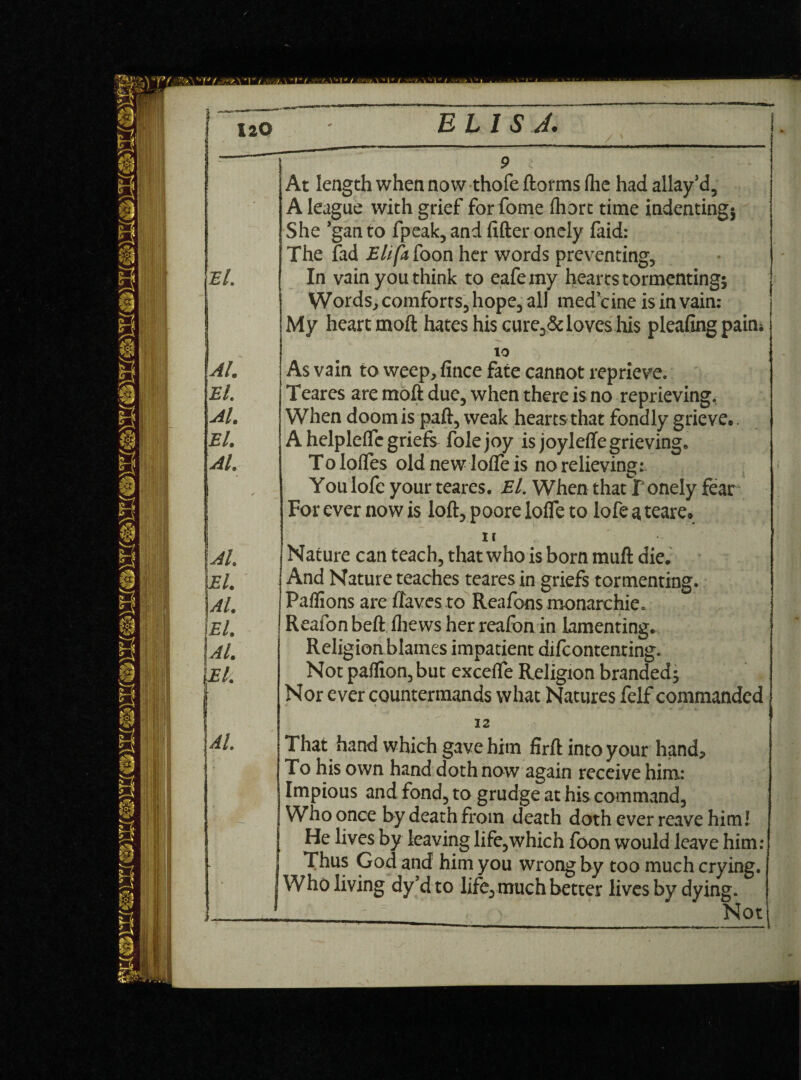 120 ELISA.
9
At length when now thoſe ſtorms ſhe had allay'd,
A league with grief for ſome ſhort time indenting;
She 'gan to ſpeak, and ſiſter onely ſaid:
The ſad Eliſa ſoon her words preventing,
El. In vain you think to eaſe my hearts tormenting;
Words, comforts, hope, all med'cine is in vain:
My heart moſt hates his cure, & loves his pleaſing pain.
10
Al. As vain to weep, ſince fate cannot reprieve.
El. Teares are moſt due, when there is no reprieving.
Al. When doom is paſt, weak hearts that fondly grieve.
El. A helpleſſe griefs ſole joy is joyleſſe grieving.
Al. To loſſes old new loſſe is no relieving:
You loſe your teares. El. When that I onely fear
For ever now is loſt, poore loſſe to loſe a teare.
11
Al. Nature can teach, that who is born muſt die.
El. And Nature teaches teares in griefs tormenting.
Al. Paſſions are ſlaves to Reaſons monarchie.
El. Reaſon beſt ſhews her reaſon in lamenting.
Al. Religion blames impatient diſcontenting.
El. Not paſſion, but exceſſe Religion branded;
Nor ever countermands what Natures ſelf commanded
12
Al. That hand which gave him firſt into your hand,
To his own hand doth now again receive him:
Impious and fond, to grudge at his command,
Who once by death from death doth ever reave him!
He lives by leaving life, which ſoon would leave him:
Thus God and him you wrong by too much crying.
Who living dy'd to life, much better lives by dying.
Not